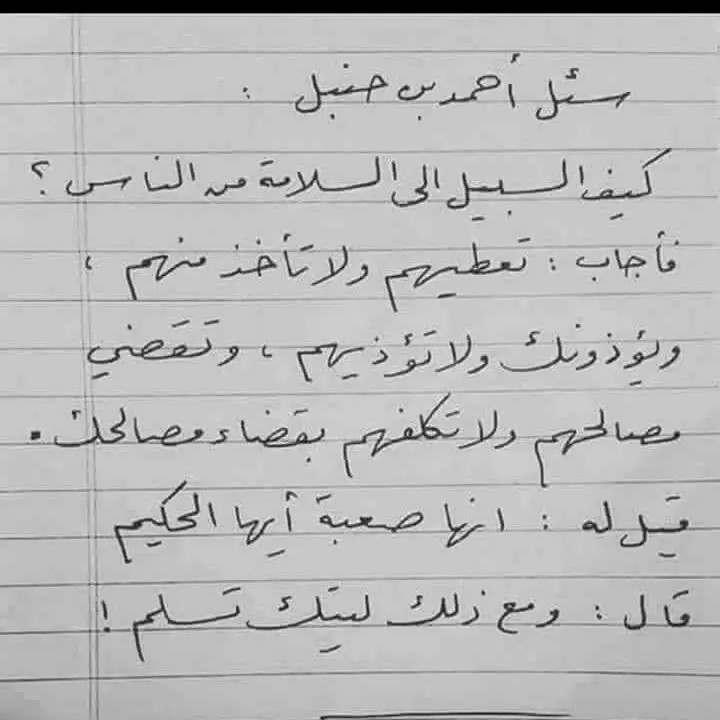 سئل أحمد بن حنبل :
كيف السبيل الى السلامة من الناس ؟
فأجاب : تعطيهم ولا تأخذ منهم ،
ويؤذونك ولا تؤذيهم ، وتقضي
مصالحهم ولا تكلفهم بقضاء مصالحك .
قيل له : انها صعبة أيها الحكيم
قال : ومع ذلك ليتك تسلم !